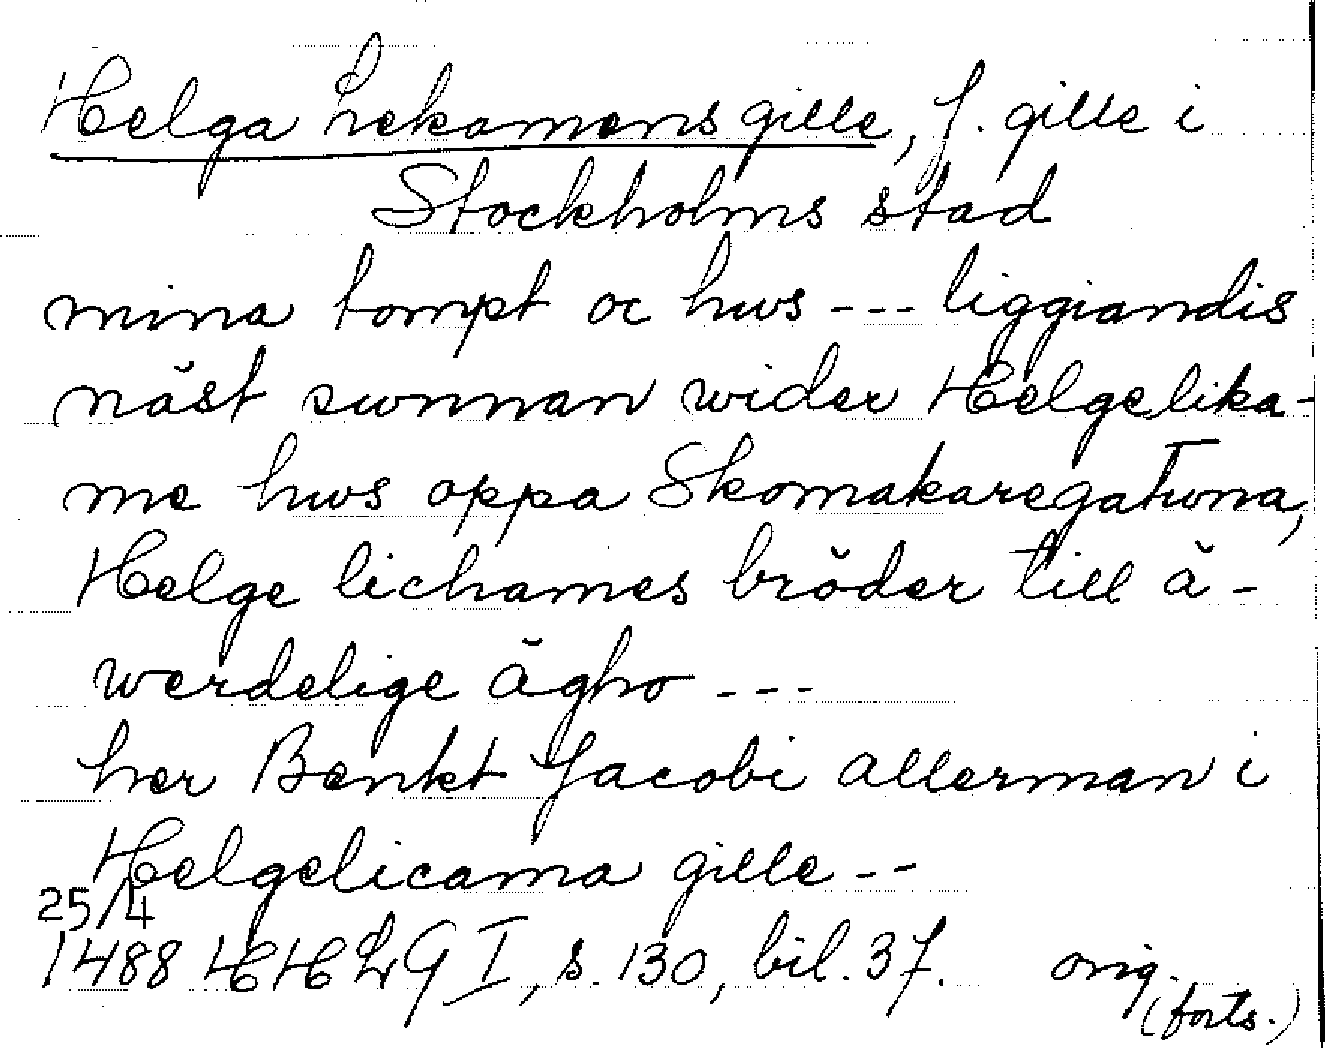 Helga Lekamens gille, f. gille i
Stockholms stad
mina tompt oc hws --- liggiandis
näst swnnan wider Helgelika-
me hws oppa Skomakaregatwna,
Helge lichames bröder till ä-
werdelige ägho ---
her Benkt Jacobi allerman i
Helgelicama gille --
25/4
1488 HHLG I, s. 130, bil. 37. orig.
(forts.)